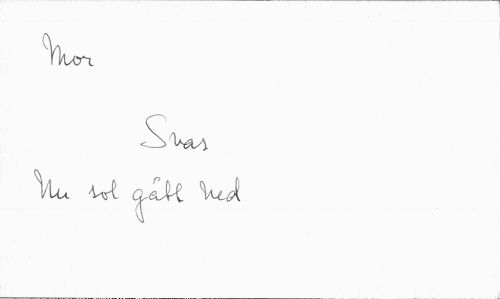 Mor
Svas
Nu sol gått ned